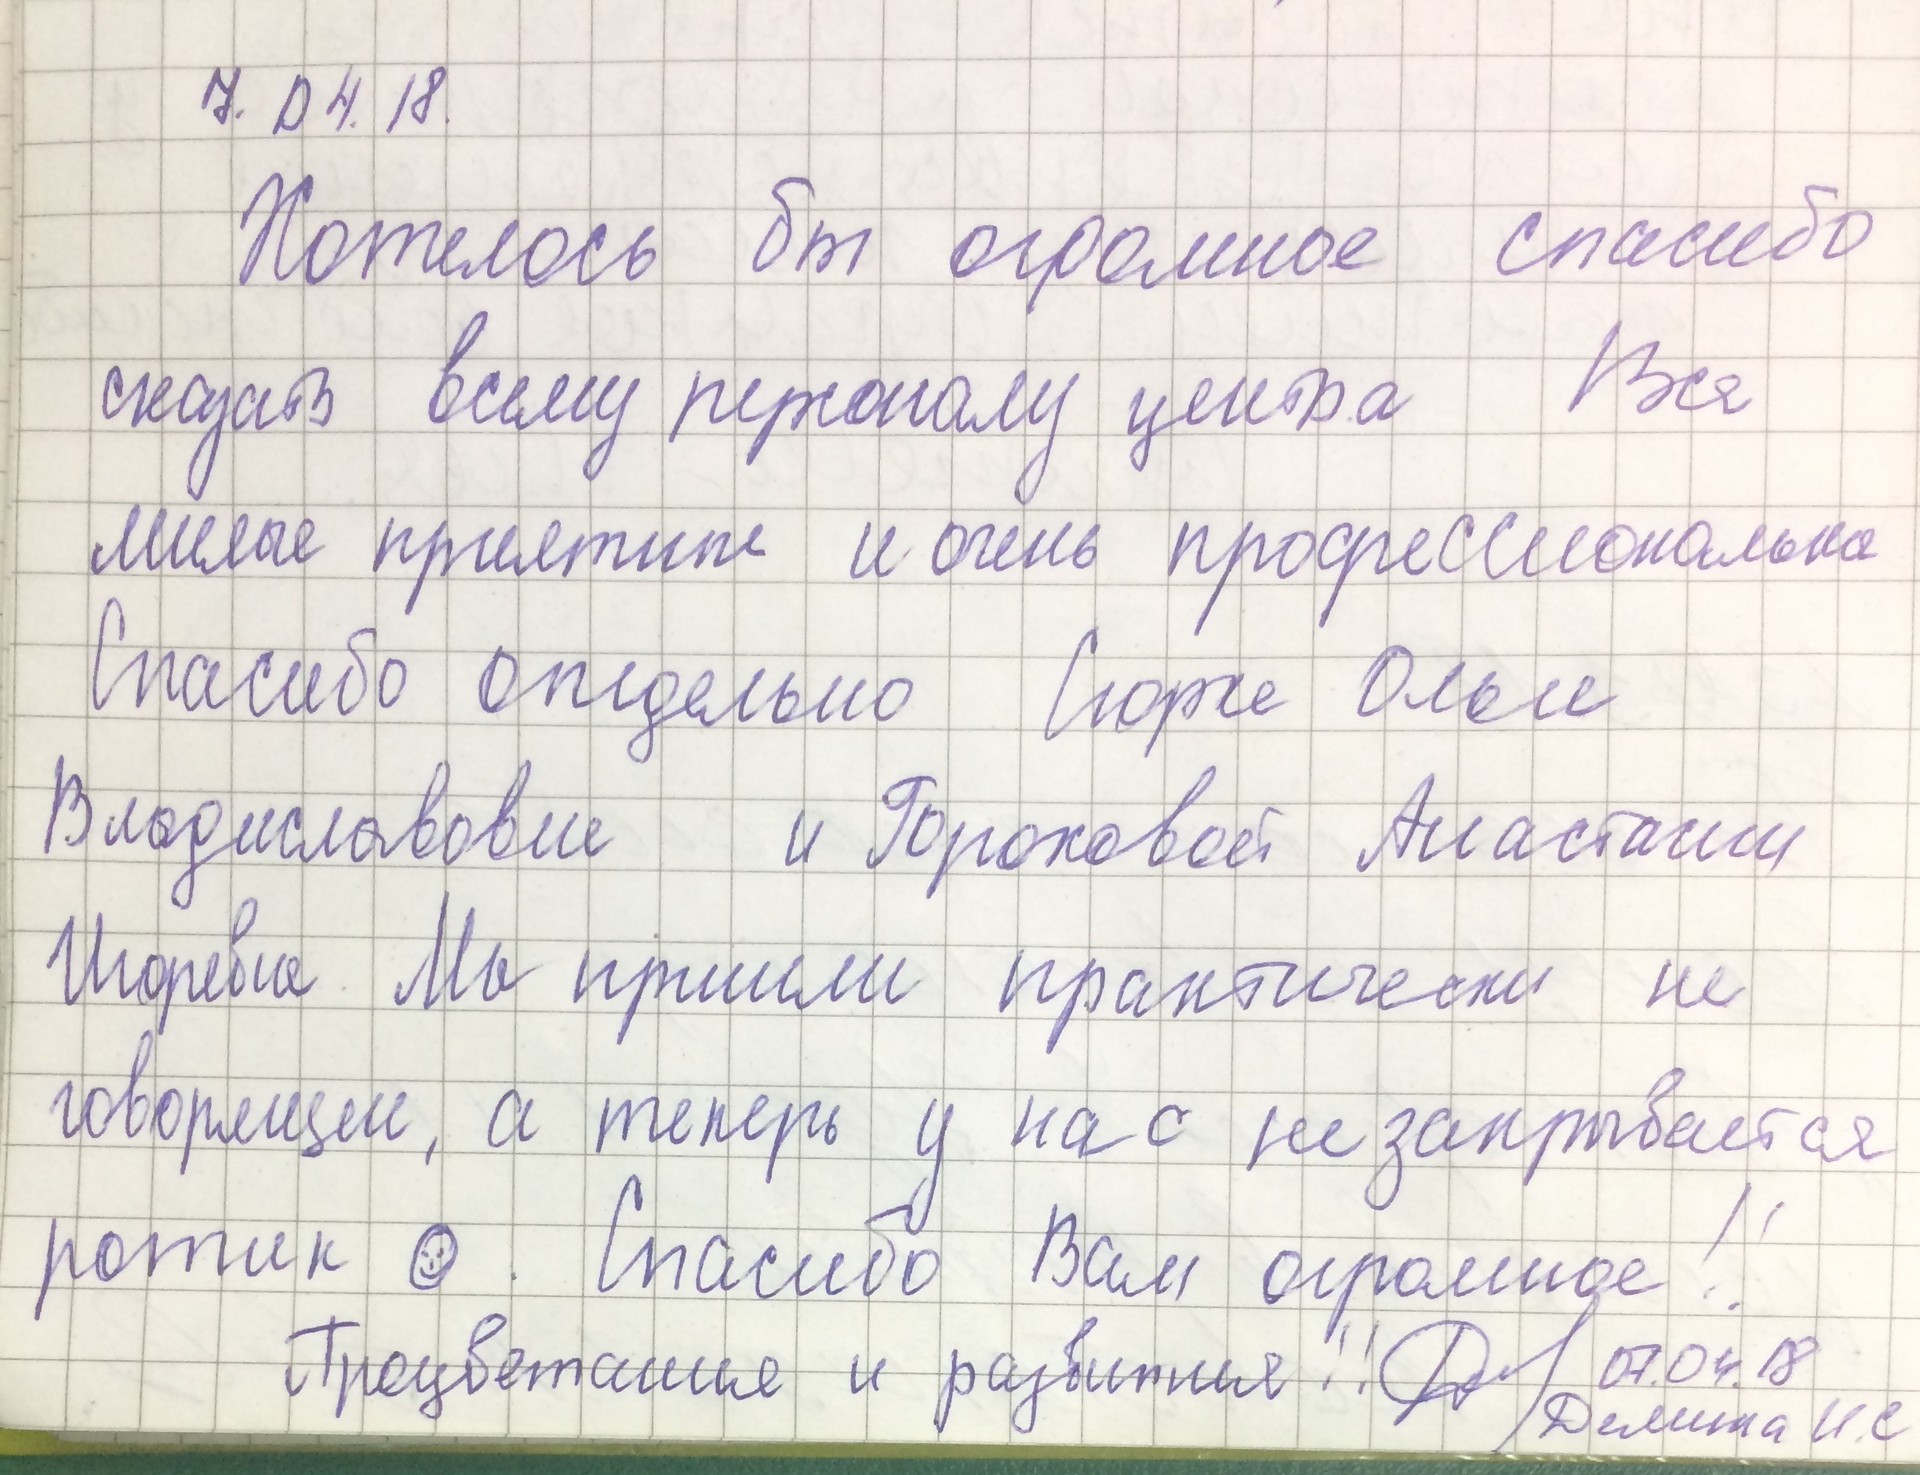 7.04.18.
Хотелось бы огромное спасибо
сказать всему персоналу центра Все
милые приятные и очень профессиональные
Спасибо отдельно Ольги
Владиславовне и Гороховой Анастасии
Игоревне. Мы пришли практически не
говорящем, а теперь у нас не закрывается
ротик ☺. Спасибо Вам огромное!!
Процветания и развития!! 07.04.18
Демина И.С